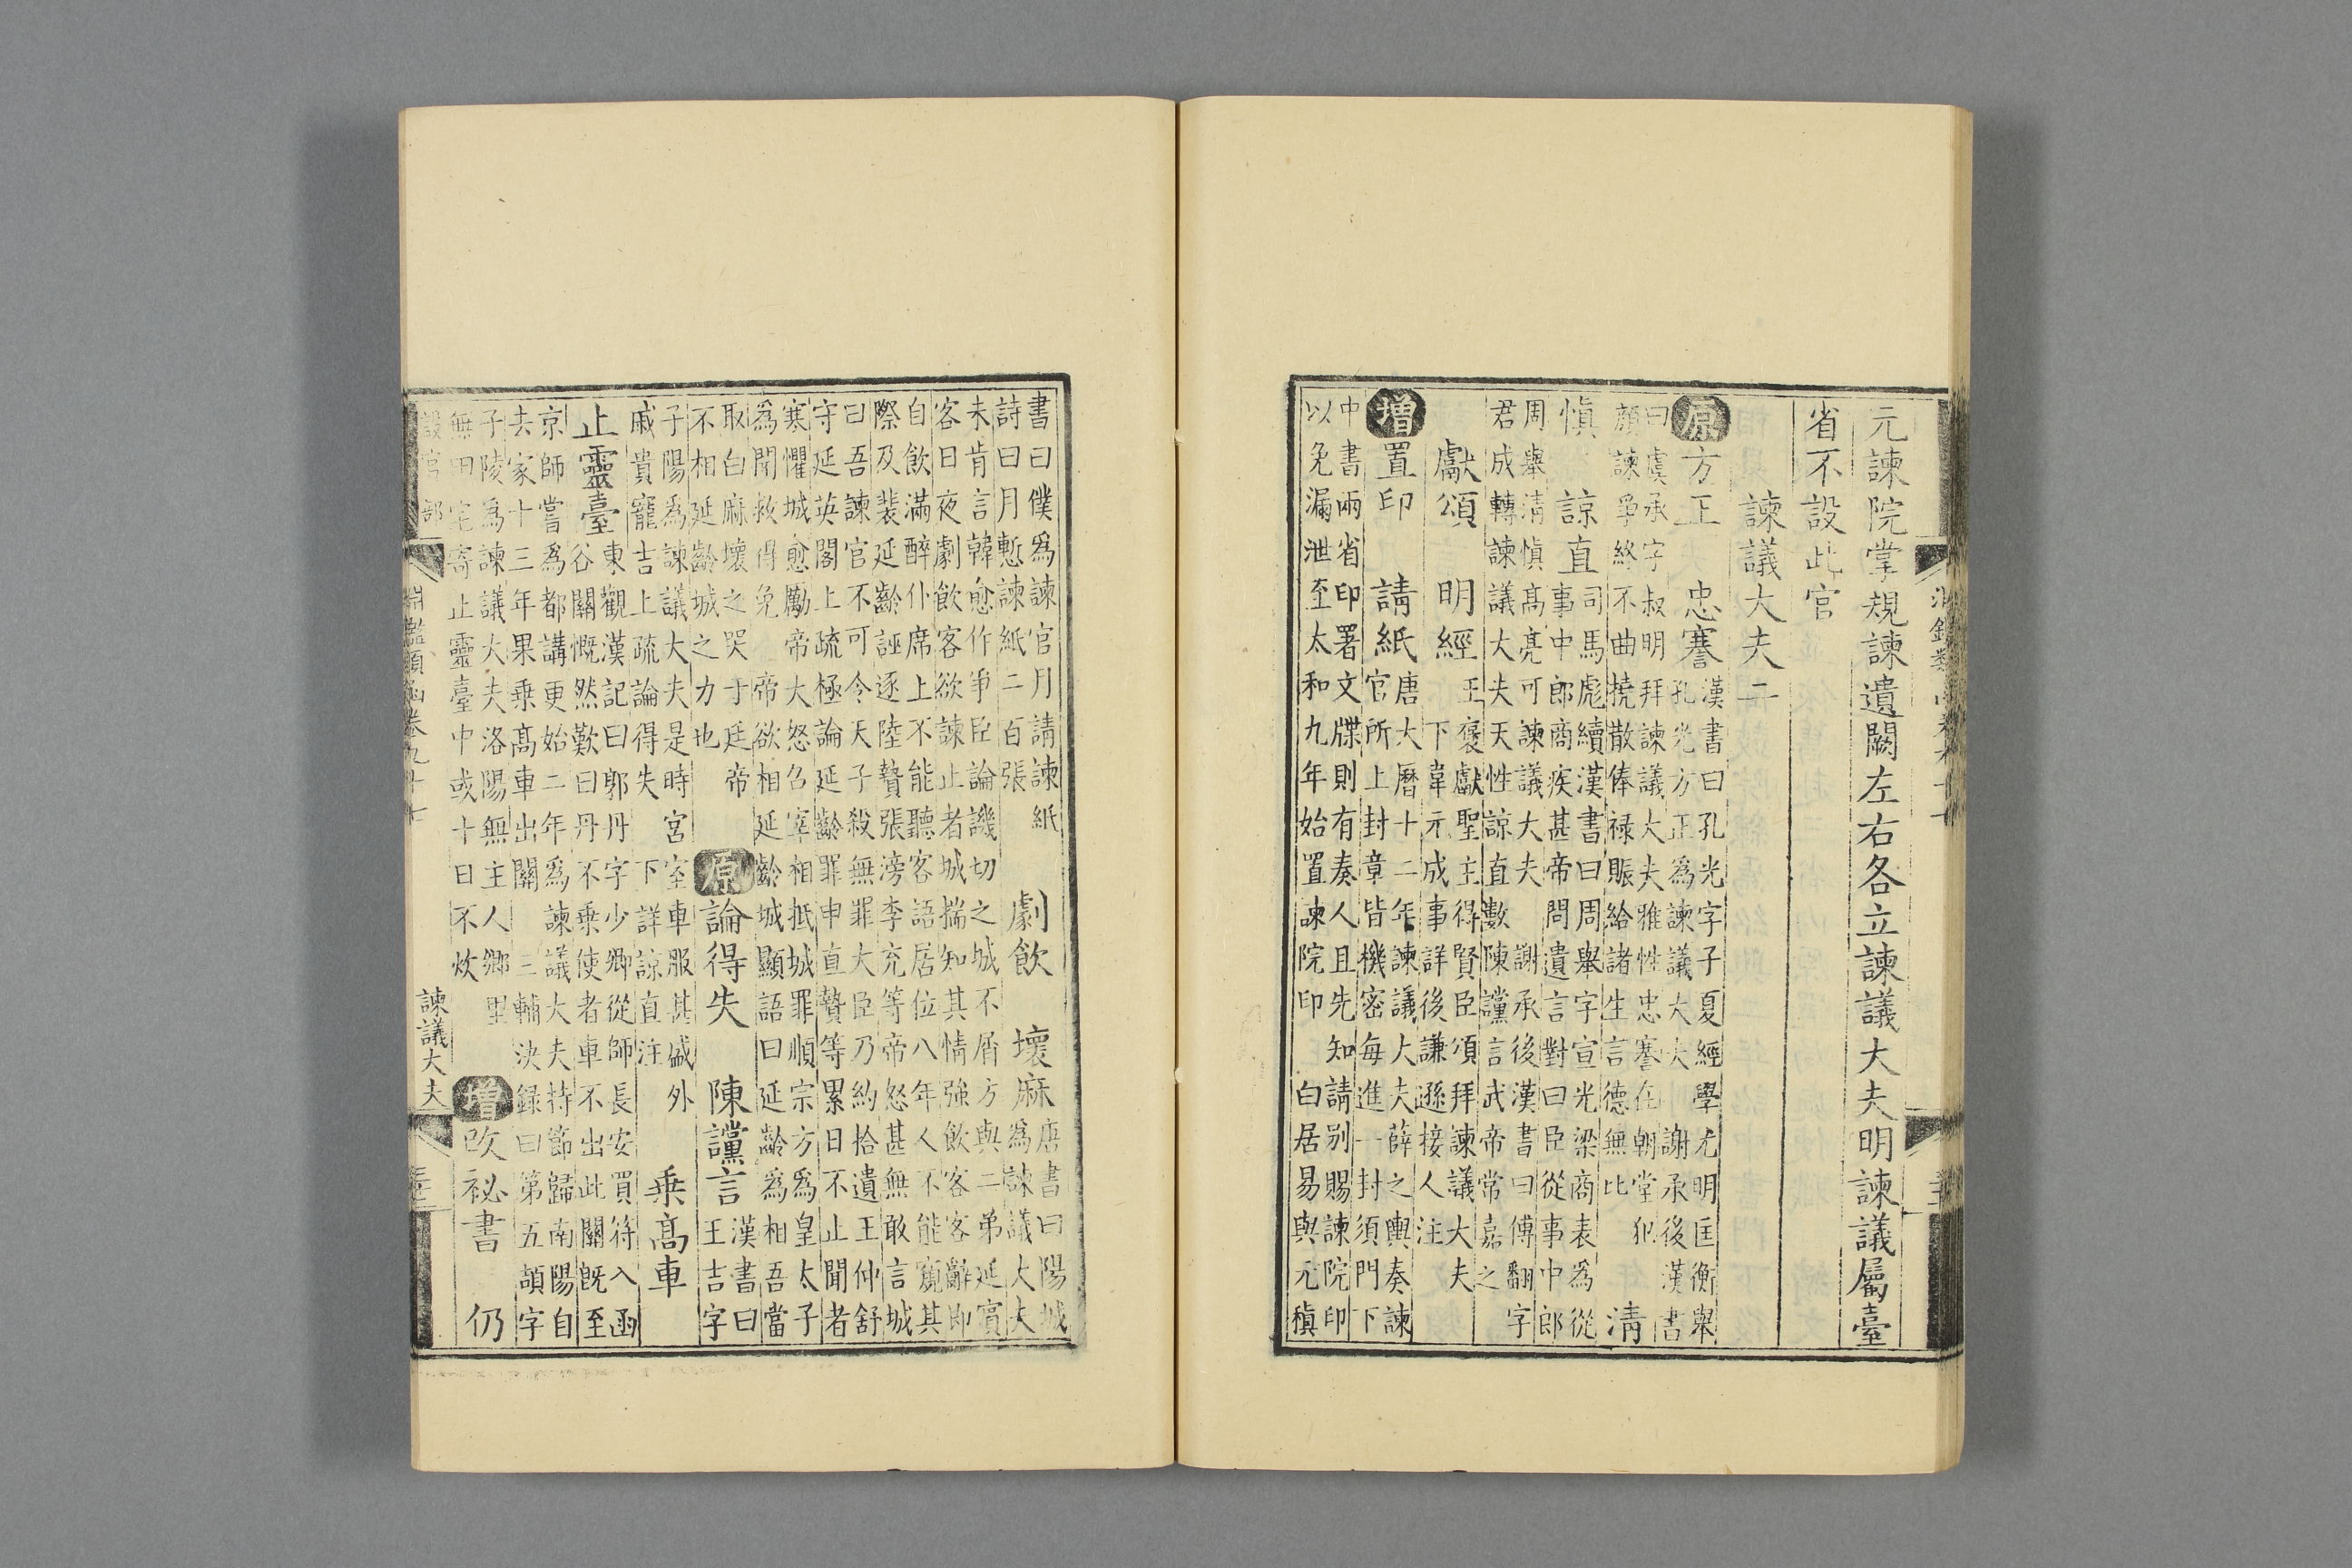 元諫院掌規諫遺闕左右各立諫議大夫明諫議屬臺
省不設此官
諫議大夫二
原 方正 忠謇
漢書曰孔光字子夏經學尤明匡衡舉
孔光方正為諫議大夫 謝承後漢書
曰虞承字叔明拜諫議大夫雅性忠謇在朝堂犯
顏諫爭終不曲撓散俸祿賑給諸生言德無比
清
慎 諒直
司馬彪續漢書曰周舉字宣光梁商表為從
事中郎商疾甚帝問遺言對曰臣從事中郎
周舉清慎高亮可諫議大夫 謝承後漢書曰傅翻字
君成轉諫議大夫天性諒直數陳讜言武帝常嘉之
獻頌 明經
王褒獻聖主得賢臣頌拜諫議大夫
下韋元成事詳後謙遜接人注
增 置印 請紙
唐大曆十二年諫議大夫薛之輿奏諫
官所上封章皆機密每進一封須門下
中書兩省印署文牒則有奏人且先知請別賜諫院印
以免漏泄至太和九年始置諫院印 白居易與元稹
書曰僕為諫官月請諫紙
詩曰月慙諫紙二百張
劇飲 壞麻
唐書曰陽城
為諫議大夫
未肯言韓愈作爭臣論譏切之城不屑方與二弟延賓
客日夜劇飲客欲諫止者城揣知其情強飲客客辭即
自飲滿醉仆席上不能聽客語居位八年人不能窺其
際及裴延齡誣逐陸贄張滂李充等帝怒甚無敢言城
曰吾諫官不可令天子殺無罪大臣乃約拾遺王仲舒
守延英閣上疏極論延齡罪申直贄等累日不止聞者
寒懼城愈勵帝大怒召宰相抵城罪順宗方為皇太子
為開救得免 帝欲相延齡城顯語曰延齡為相吾當
取白麻壞之哭于廷帝
不相延齡城之力也
原 論得失 陳讜言
漢書曰
王吉字
子陽為諫議大夫是時宮室車服甚盛外
戚貴寵吉上疏論得失 下詳諒直注
乘高車
止靈臺
東觀漢記曰郭丹字少卿從師長安買符入函
谷關慨然歎曰丹不乘使者車不出此關既至
京師嘗為都講更始二年為諫議大夫持節歸南陽自
去家十三年果乘高車出關 三輔決錄曰第五頡字
子陵為諫議大夫洛陽無主人鄉里
無田宅寄止靈臺中或十日不炊
增 改祕書 仍
設官部 淵鑑類函卷九十七 諫議大夫